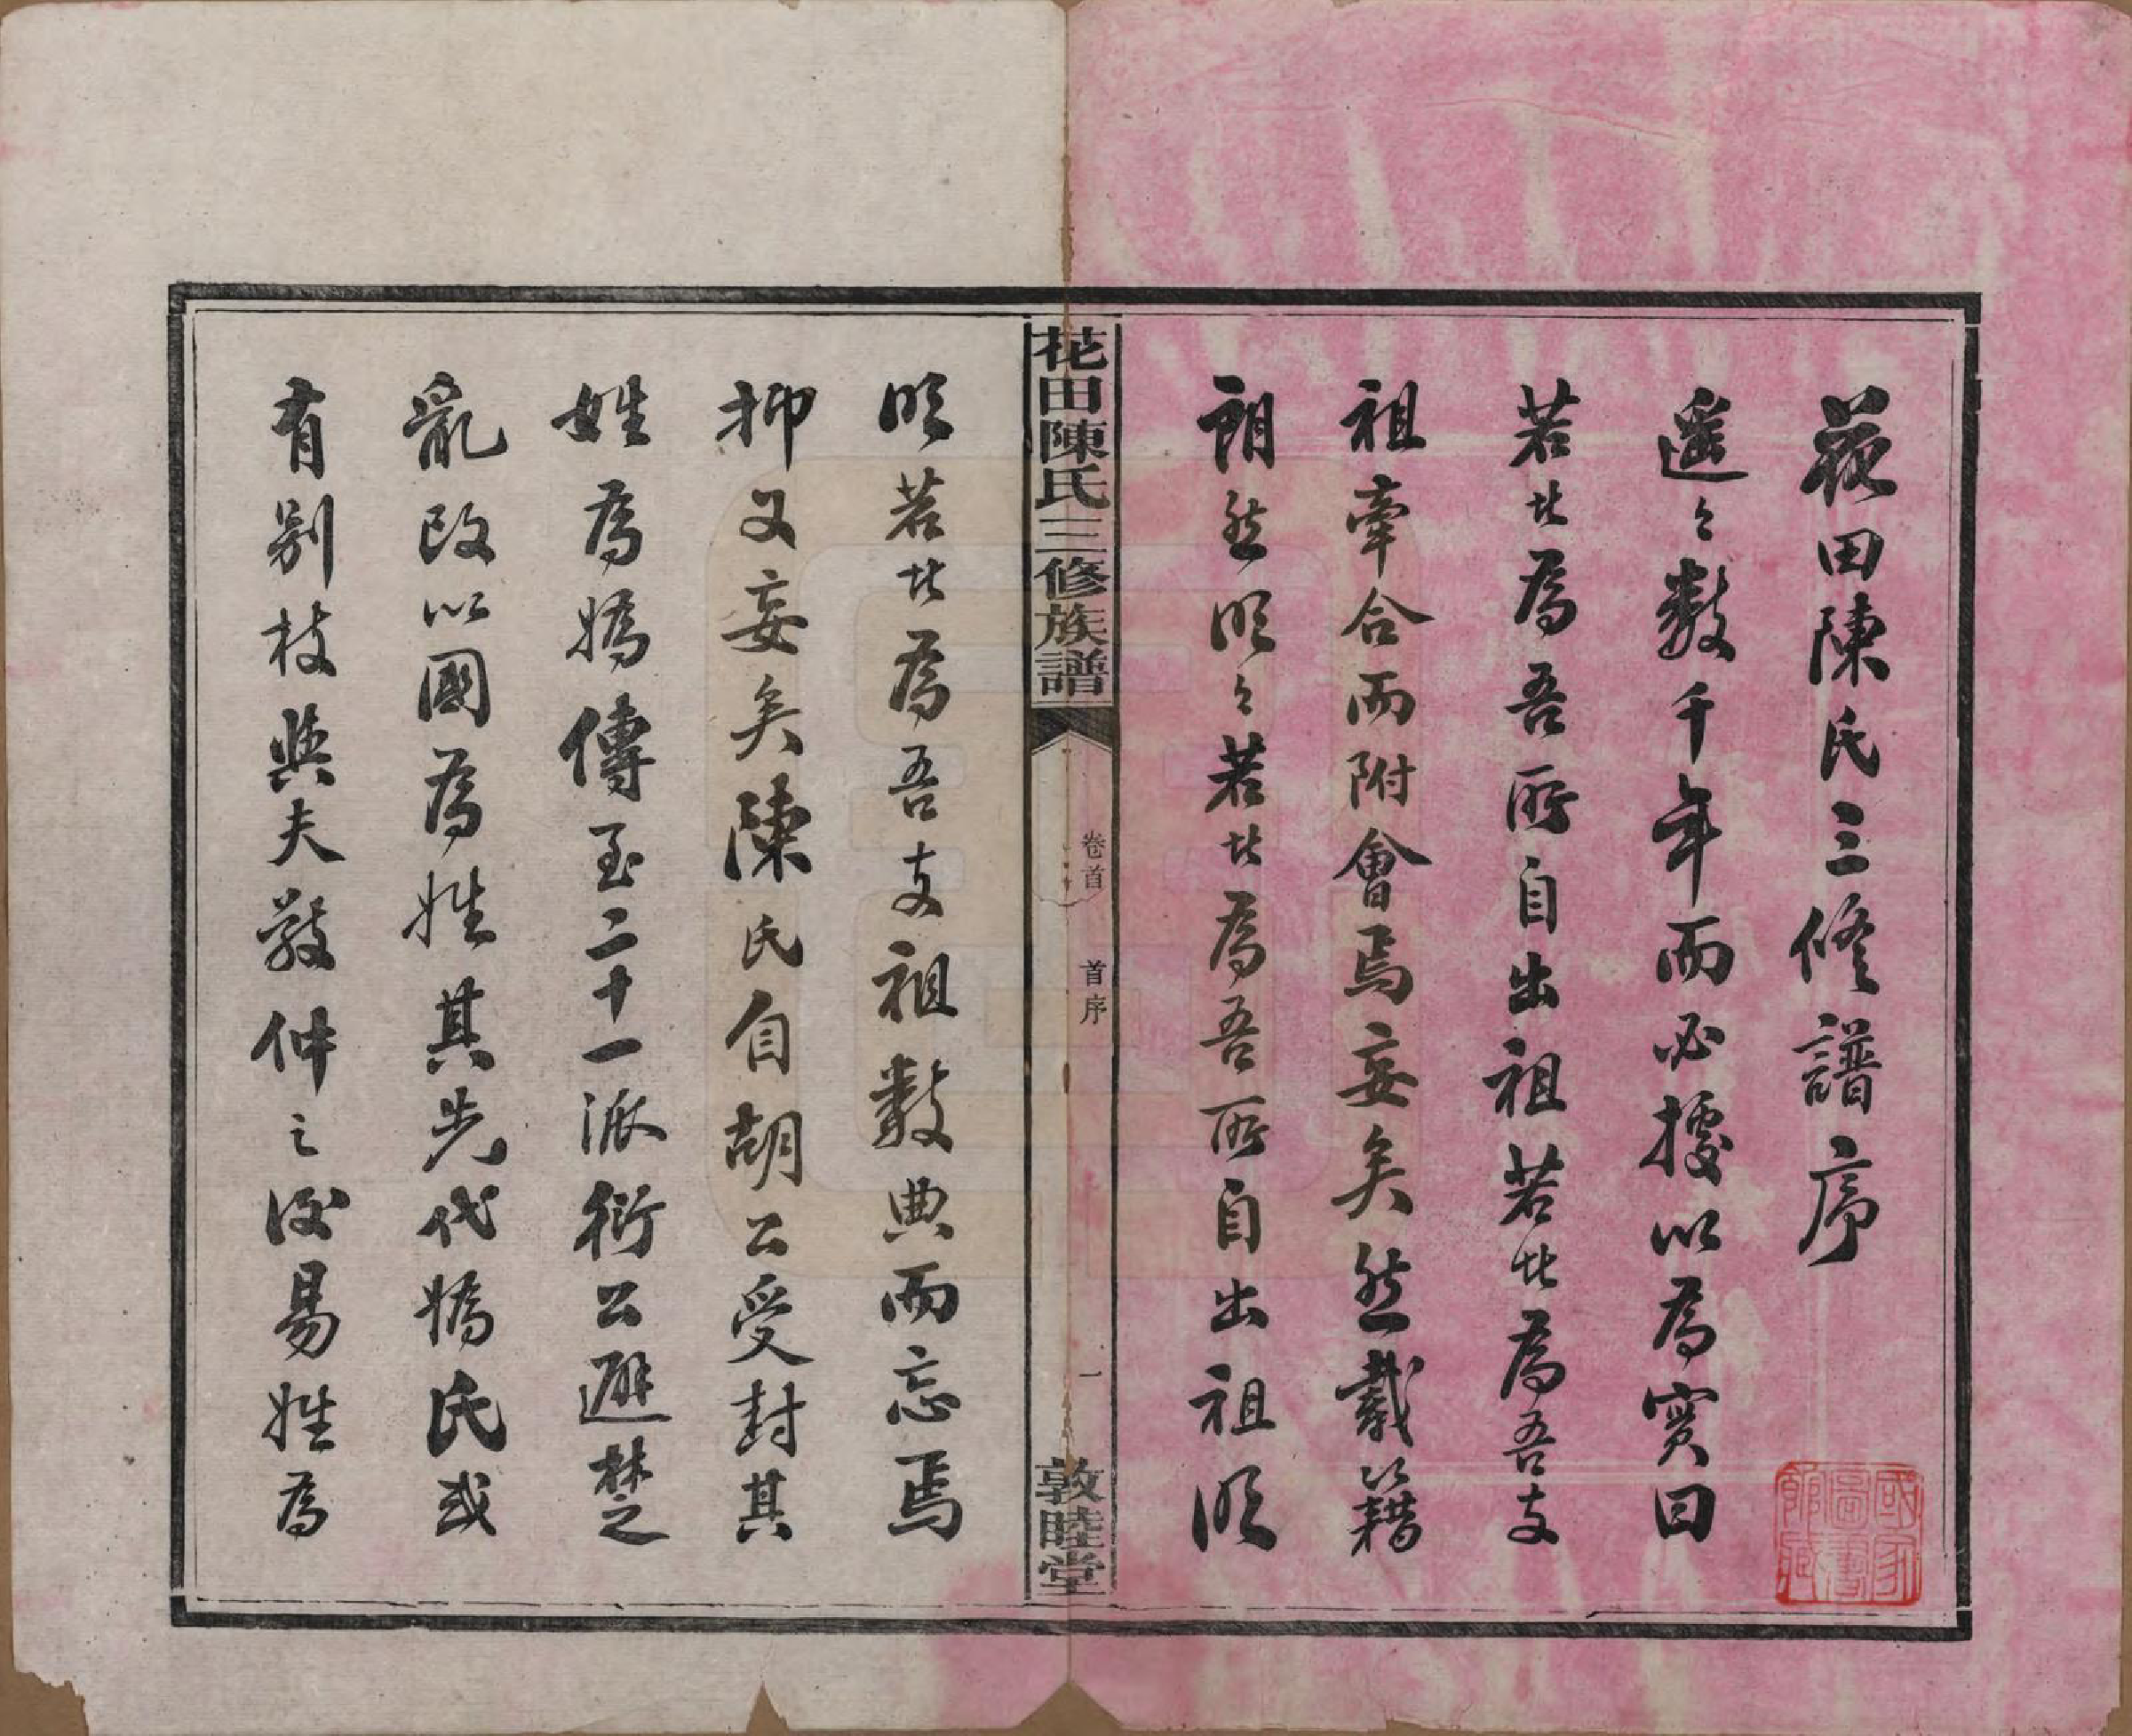 花田陳氏三修譜序
遥々數千年而必據以為實曰
若此為吾所自出祖若此為吾支
祖牽合而附會焉妄矣然載籍
朗然明々若此為吾所自出祖明
明若此為吾支祖數典而忘焉
抑又妄矣陳氏自胡公受封其
姓為媯傳至二十一派衍公避楚之
亂改以國為姓其先代媯氏或
有别枝與夫敬仲之後易姓為
花田陳氏三修族譜
卷首 首序
一
敦睦堂
國家圖書館藏